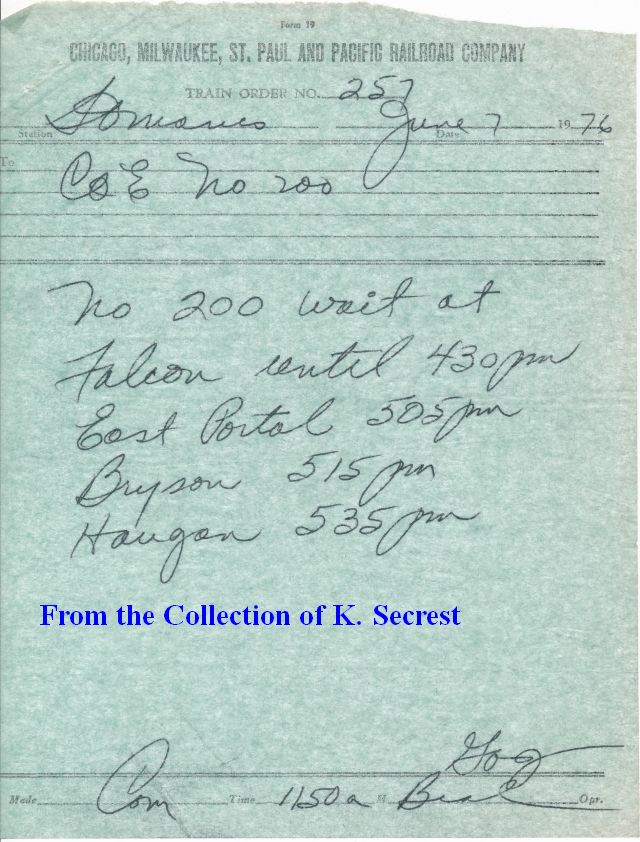 Form 19
CHICAGO, MILWAUKEE, ST. PAUL AND PACIFIC RAILROAD COMPANY
TRAIN ORDER NO. 257
Station St Maries Date June 7 1976
To
C&E No 200
No 200 wait at
Falcon until 430pm
East Portal 505pm
Bryson 515pm
Haugan 535pm
From the Collection of K. Secrest
Made Com Time 1150a M Opr.